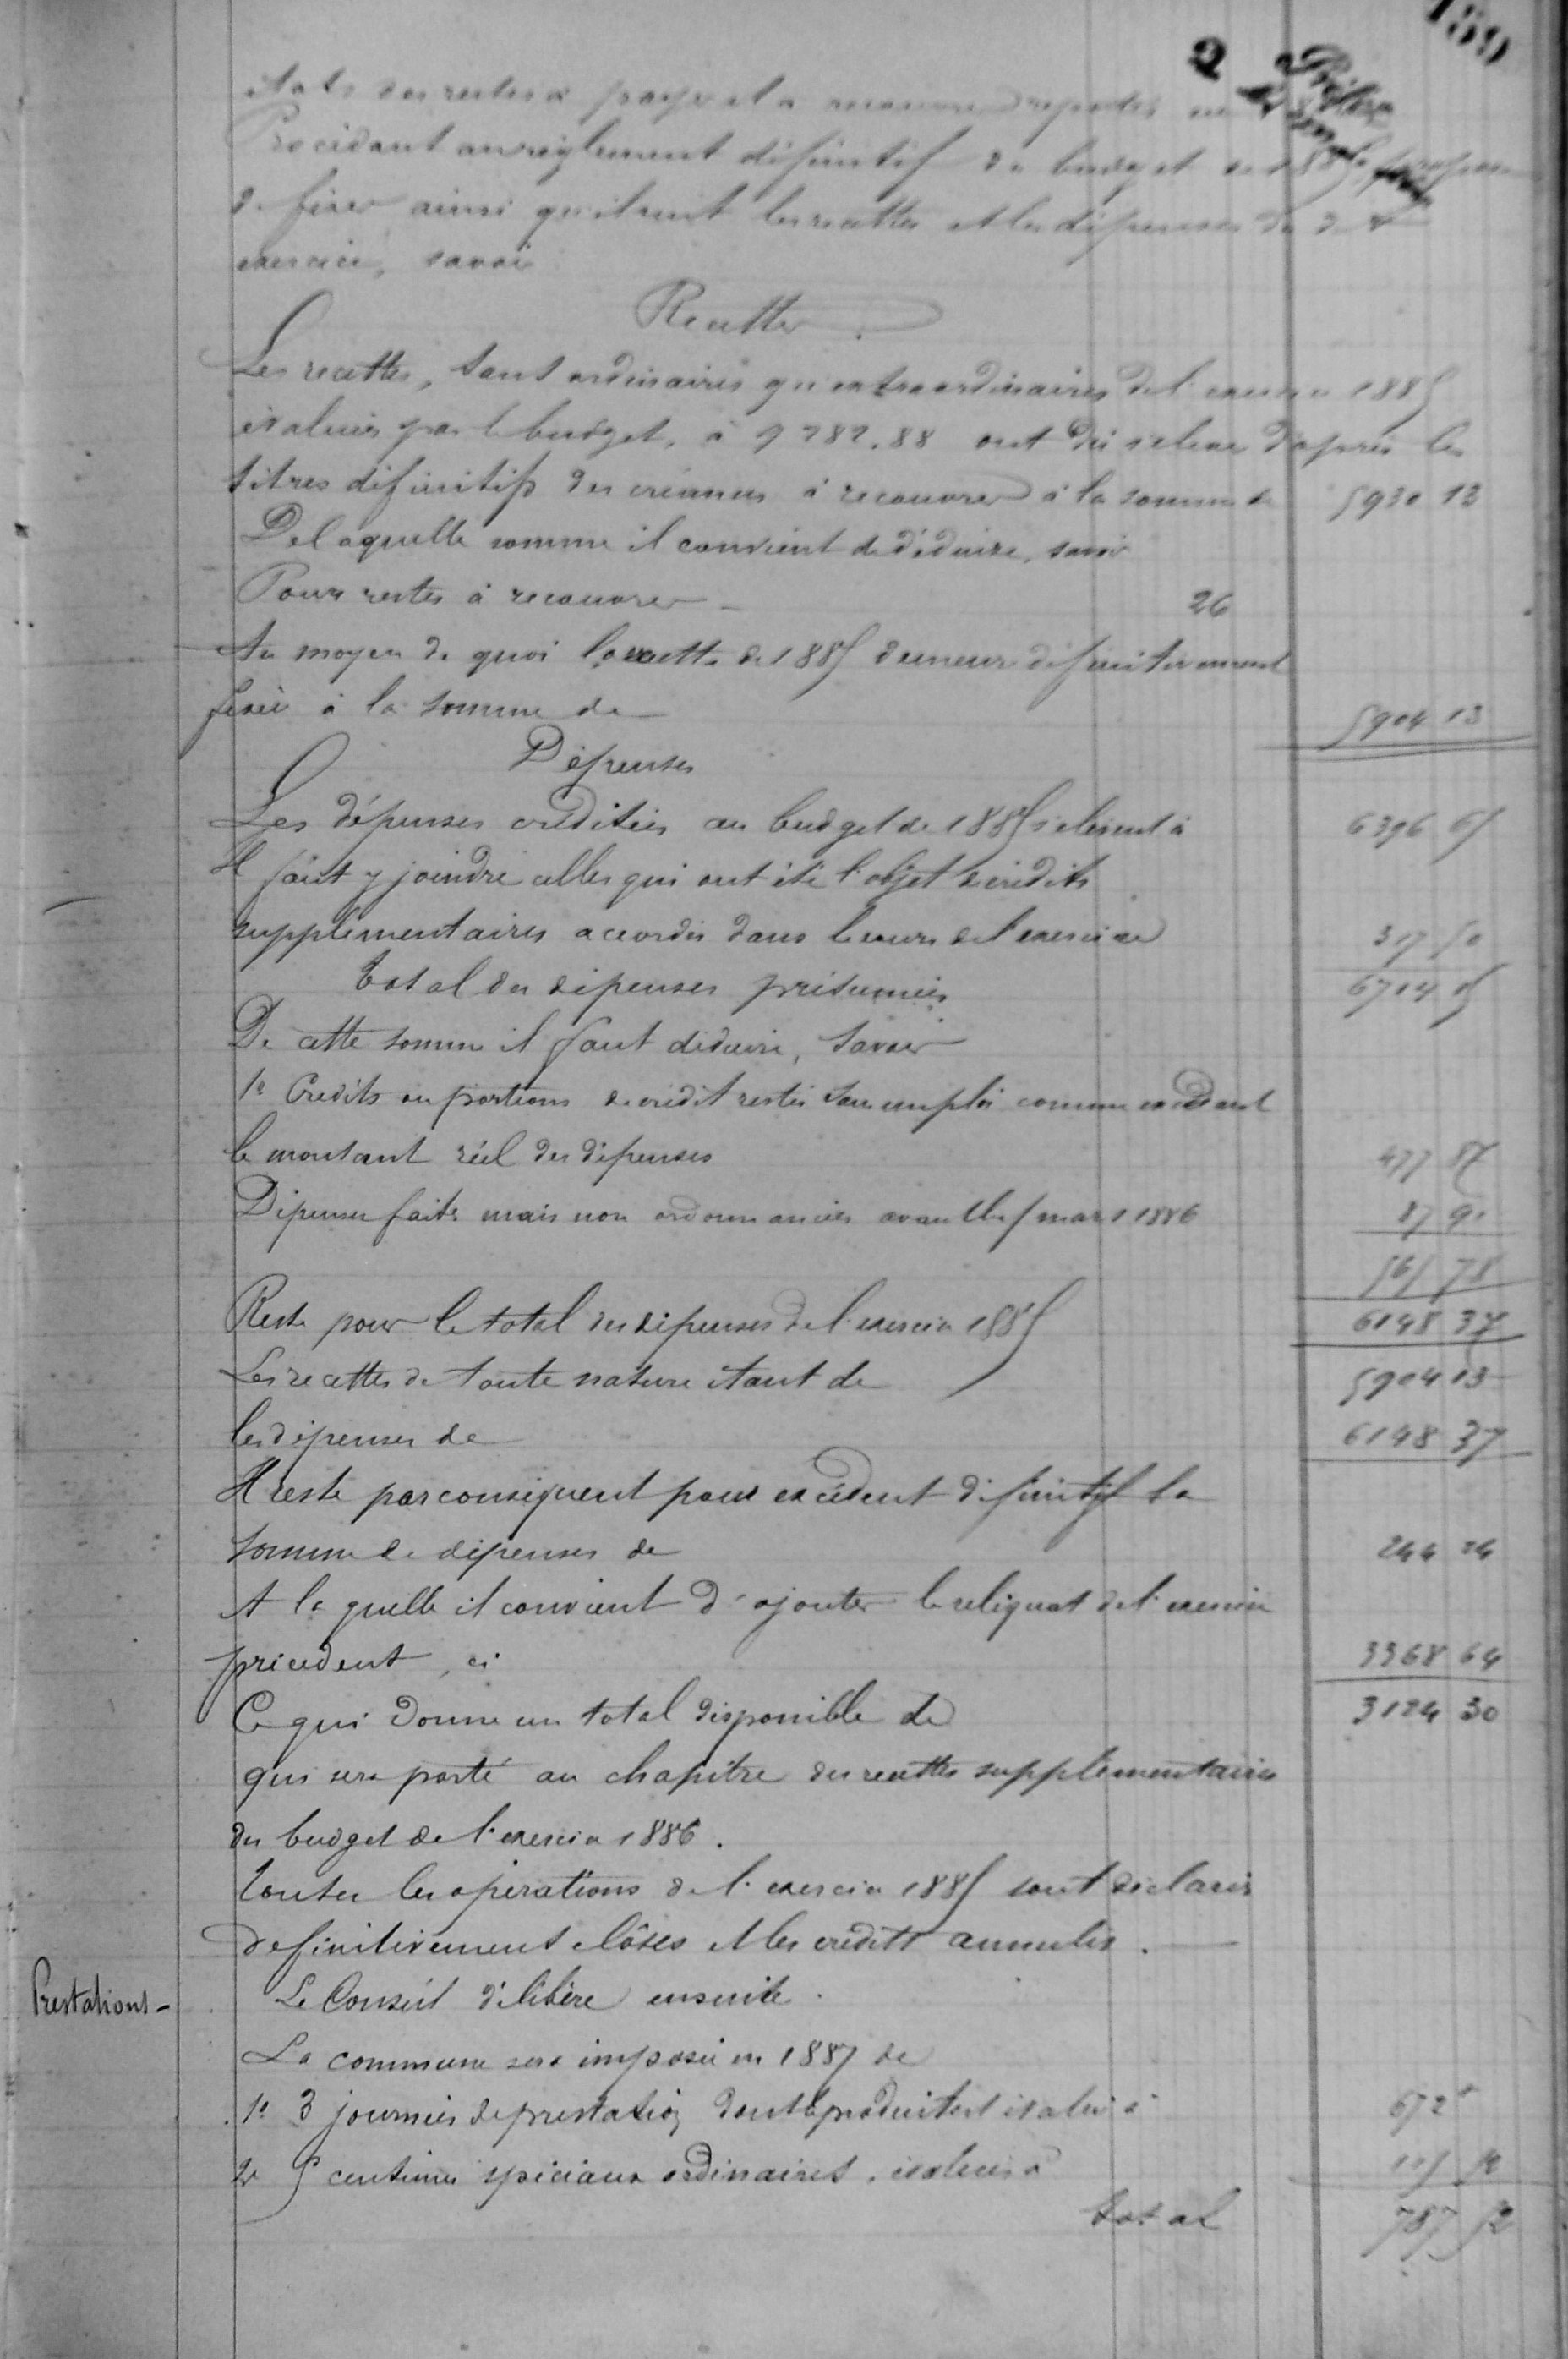 159
2
états des restes à payer et à recouvrer reportés
Procédant au règlement définitif du budget de 1885, propose
de fixer ainsi qu'il suit les recettes et les dépenses du dit
exercice, savoir
Recettes
Les recettes, tant ordinaires qu'extraordinaires de l'exercice 1885
évaluées par le budget, à 9282.88 ont dû s'élever d'après les
titres définitifs des créances à recouvrer à la somme de 5930 13
De laquelle somme il convient de déduire, savoir
Pour restes à recouvrer 26
Au moyen de quoi la recette de 1885 demeure définitivement
fixée à la somme de 5904 13
Dépenses
Les dépenses créditées au budget de 1885 s'élèvent à 6396 65
Il faut y joindre celles qui ont été l'objet de crédits
supplémentaires accordés dans le cours de l'exercice 317 50
Total des dépenses présumées 6714 15
De cette somme il faut déduire, savoir
1º Crédits ou portions de crédit restés sans emploi comme excédant
le montant réel des dépenses 477 87
Dépenses faites mais non ordonnancées avant le 15 mars 1886 87 91
565 78
Reste pour le total des dépenses de l'exercice 1885 6148 37
Les recettes de toute nature étant de 5904 13
les dépenses de 6148 37
Il reste par conséquent pour excédent définitif la
somme de dépenses de 244 24
A laquelle il convient d'ajouter le reliquat de l'exercice
précédent, ci 3368 64
Ce qui donne un total disponible de 3124 30
qui sera porté au chapitre des recettes supplémentaires
du budget de l'exercice 1886.
Toutes les opérations de l'exercice 1885 sont déclarés
définitivement clôses et les crédits annulés.
Prestations -
Le Conseil délibère ensuite.
La commune sera imposée en 1887 de
1º 3 journées de prestation dont le produit est évalué à 672
2º 5 centimes spéciaux ordinaires, évalués à 115 52
total 787 52